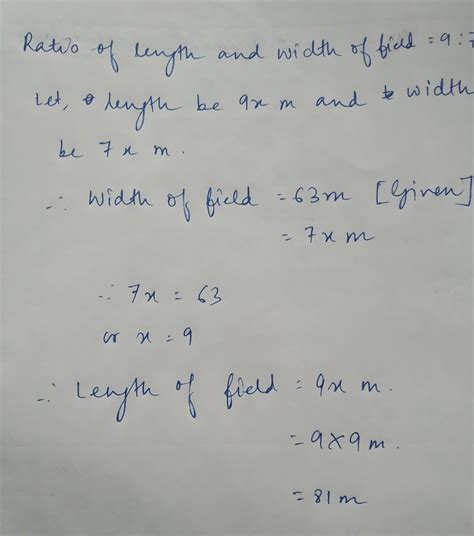 Ratio of length and width of field = 9 : 7
Let, length be 9x m and width
be 7x m.
∴ Width of field = 63m [Given]
= 7x m
∴ 7x = 63
or x = 9
∴ Length of field = 9x m.
= 9 × 9 m.
= 81 m